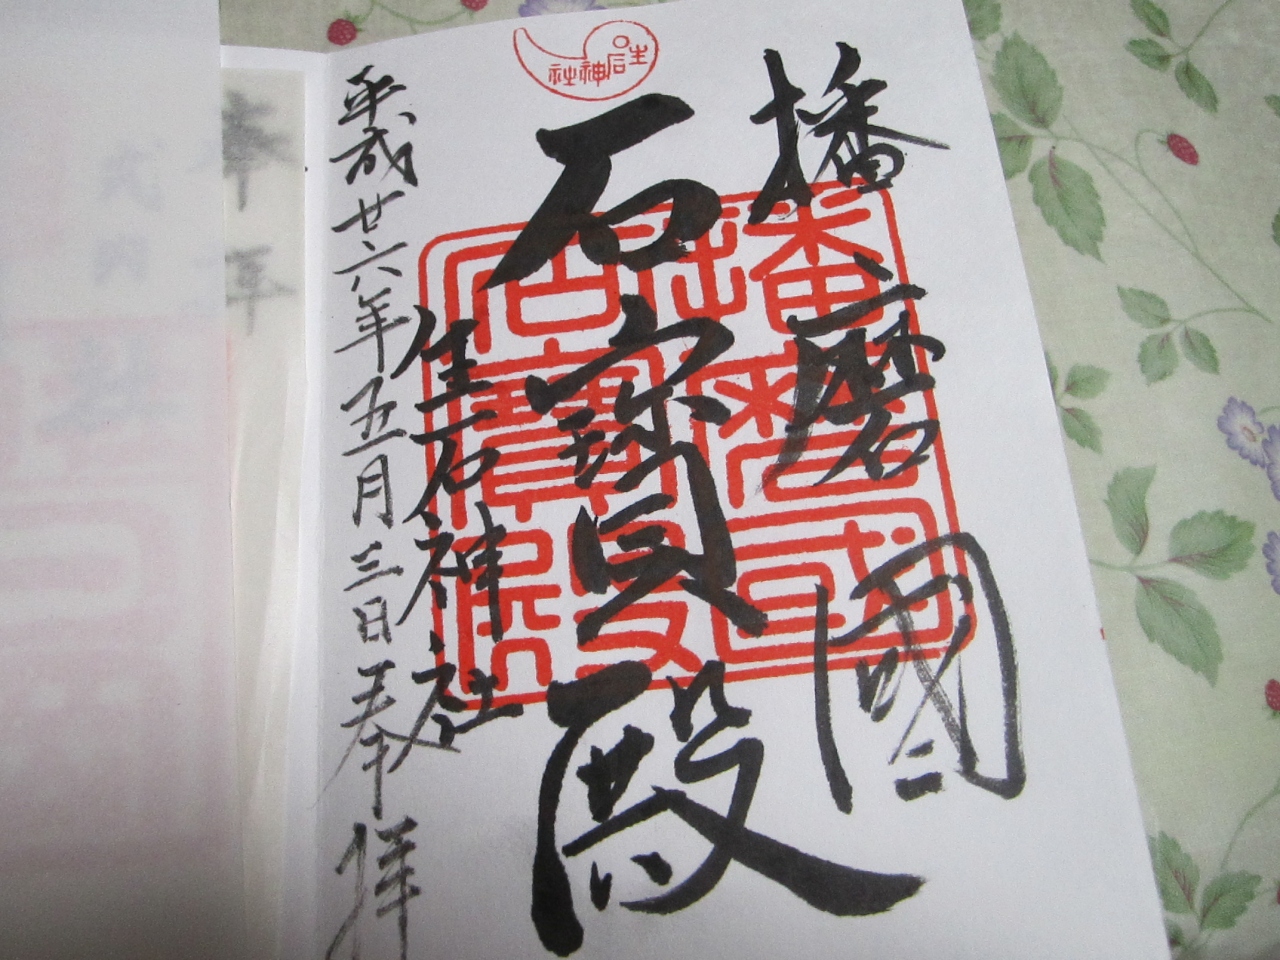 播磨國
石寶殿
生石神社
平成廿六年五月三日奉拝
生石神社
播磨國石寶殿